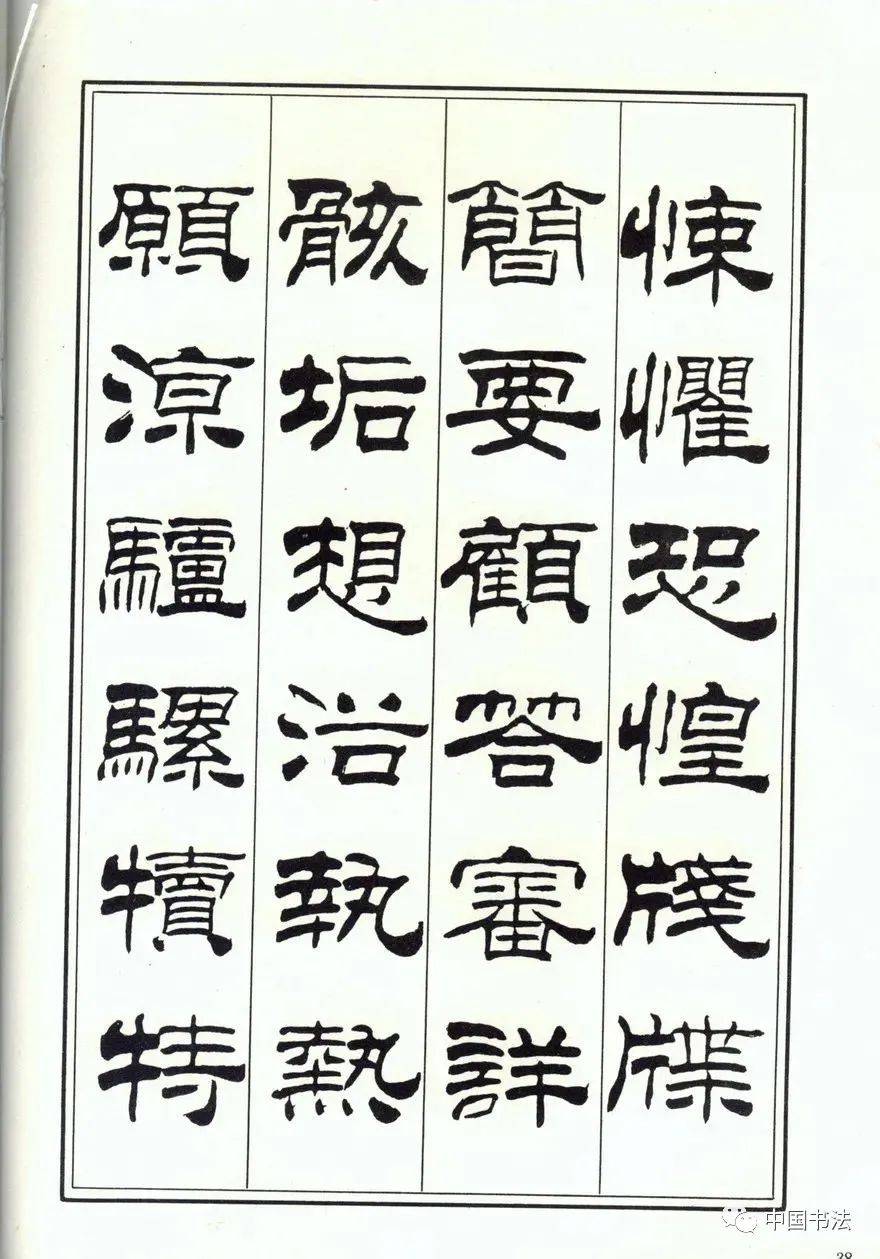 悚懼恐惶牋牒
簡要顧答審詳
骸垢想浴執熱
願涼驢騾犢特
中国书法